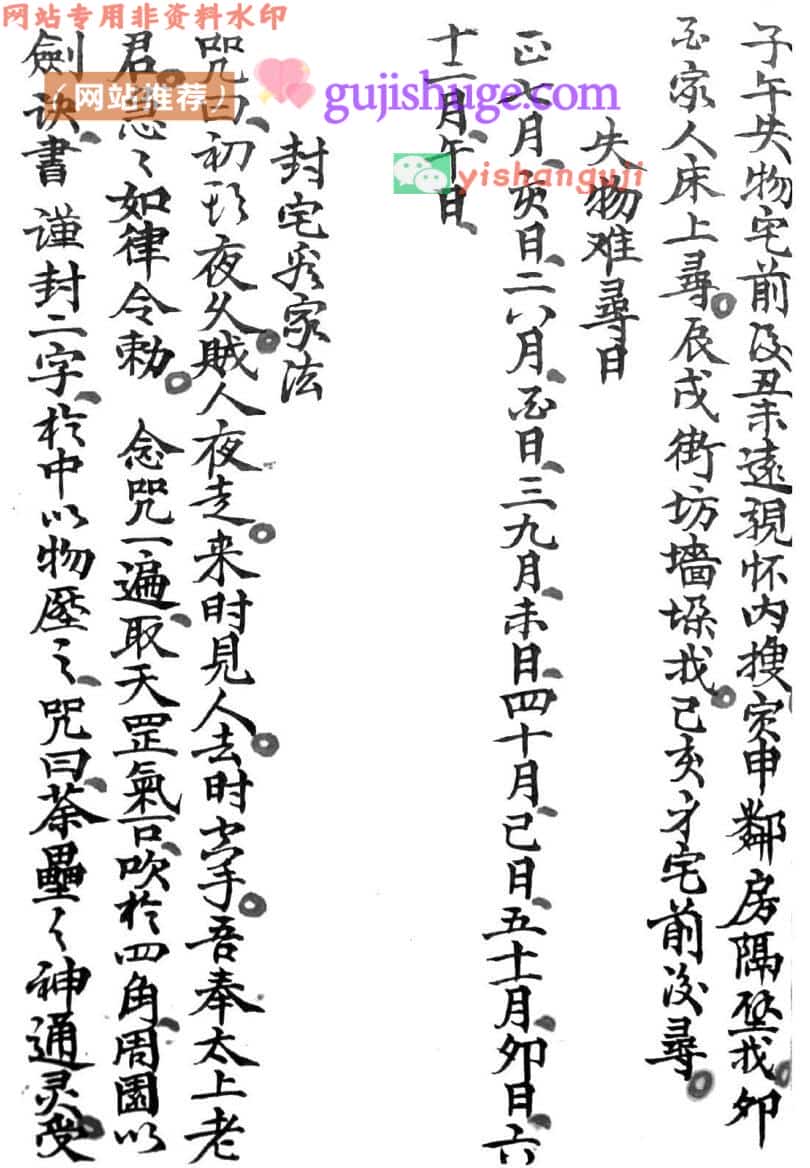 网站专用非资料水印
(网站推荐)
gujishuge.com
yishanguji
子午失物宅前后丑未遠親怀内搜寅申鄰房隔壁找卯
酉家人床上尋辰戌街坊墻垛找己亥才宅前后尋
失物难尋日
正七月亥日二八月酉日三九月未日四十月巳日五十一月卯日六
十二月午日
封宅家法
咒曰初夜久賊人夜走来时見人去时字吾奉太上老
君急々如律令勅 念咒一遍取天罡氣一口吹於四角周圍以
劍诀書谨封二字於中以物壓之咒曰荼壘々神通灵受